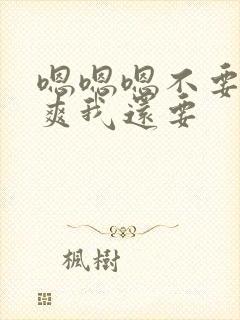 嗯嗯嗯不要
爽我還要
楓樹